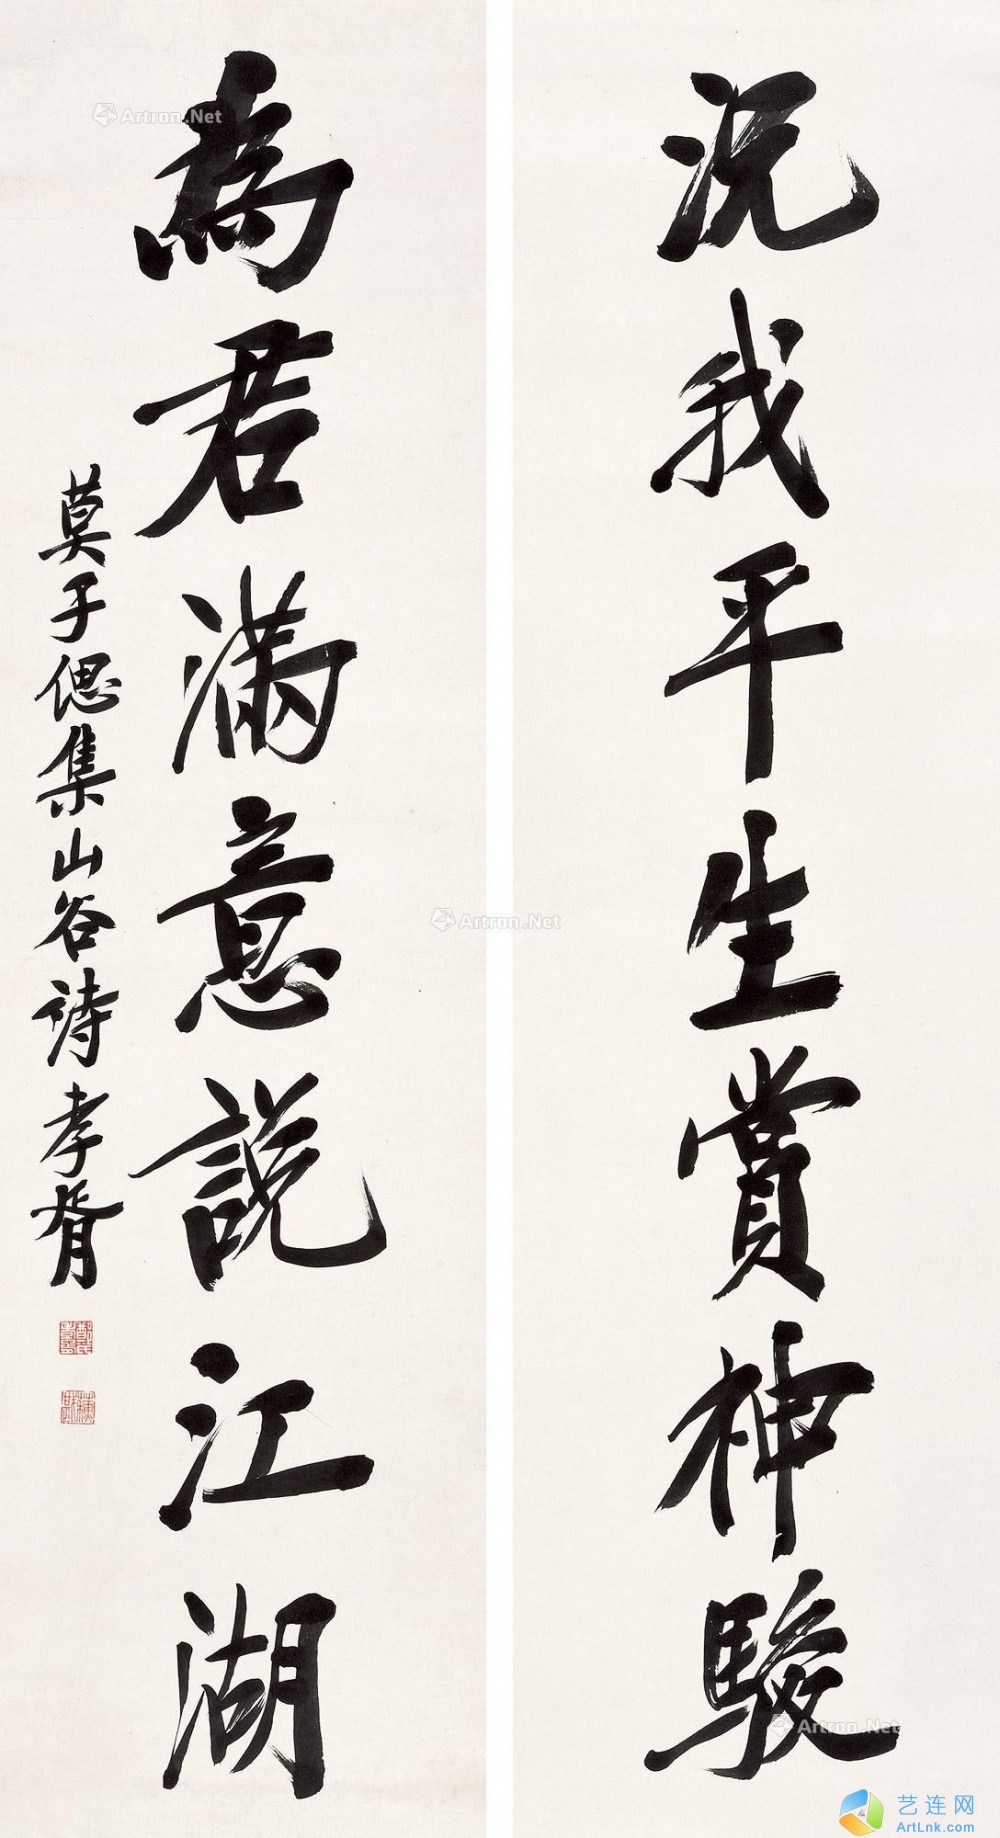 况我平生賞神駿
為君滿意説江湖
莫子偲集山谷詩孝胥
Artron.Net
Artron.Net
Artron.Net
艺连网
ArtLnk.com